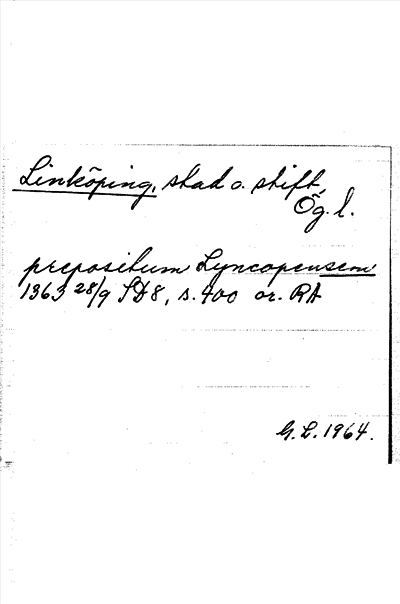 Linköping, stad o. stift,
Ög. l.
prepositum Lyncopensem
1363 28/9 SD8, s. 400 or. RA
G. L. 1964.